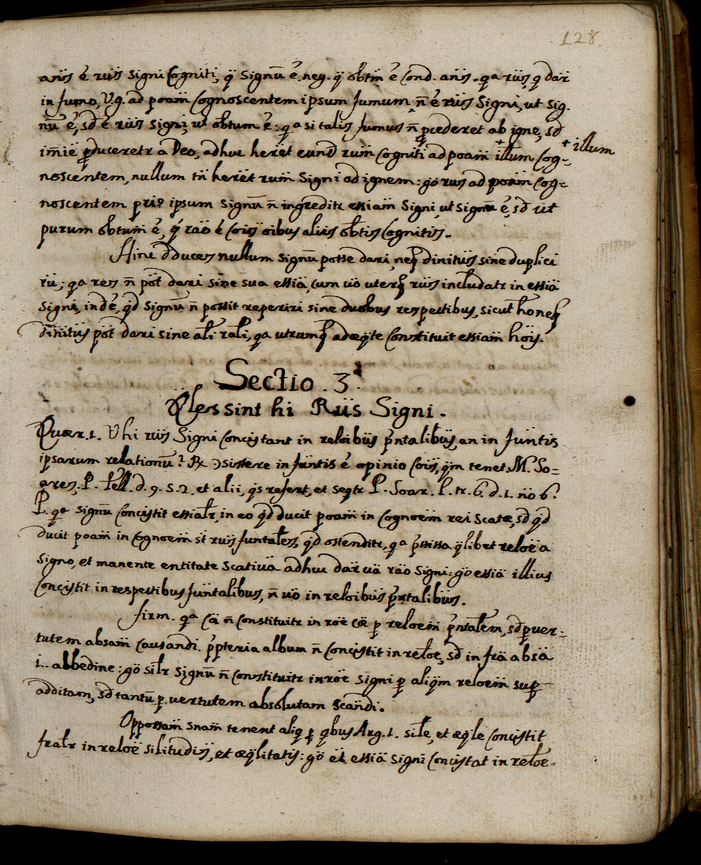 128
añs é rüs Signi Cogniti, q̃ signũ é neg. q̃ obtm̃ é Cond. añs. qa rüs, q dar̃
in fumo, V.g. ad poam̃ Cognoscentem ipsum fumum ñ é rüs Signi, ut sig-
nũ é, sd é rüs signi, ut obtum é: qa si talis fumus ñ pcederet ab igne, sd
im̃ie produceretr a Deo, adhuc herẽt eund rum̃ Cogniti ad poam̃ + illum Cog- + illum
noscentem, nullum tñ herẽt rum̃ Signi ad ignem: gö rus ad poam̃ Cog-
noscentem pri9 ipsum signũ ñ ingreditr essiam Signi, ut Signũ é, sd ut
purum obtum é, q̃ raõ é Cõis oibus aliis obtis Cognitis.
Hinc dducer nullum signum posse dari, neq dinitus sine duplici
rü; qa res ñ pöt dari sine sua essia, cum vö uterq rüs includatr in essia
signi, inde, qd signũ ñ possit reperiri sine duobus respectibus, sicut ho neq
dinitus pöt dari sine ali rali, qa utrumq adæqte Constituit essiam hois.
Sectio .3ª
Qles sint hi Rüs Signi.
Quær.1. V hi rüs Signi Concistant in reloibus prntalibus, an in funtis
ipsarum relationũ? R. Dsistere in funtis é opinio Cõis, qm̃ tenet M. So-
ares, P. Tell. d. 9. s. 2. et alii, qs refert, et seqtr P. Soar. L. tr. 6. d. 1. nö 6.
P. qa signũ Concistit essialr, in eo qd ducit poam̃ in Cognoem̃ rei Scatæ, sd qd
ducit poam̃ in Cognoem̃ st rüs funtales, qd ostenditr, qa pssisa qlibet reloẽ a
signo, et manente entitate Scativa adhuc dar va rao Signi: gö essia illius
Concistit in respectibus funtalibus, ñ vö in reloibus prntalibus.
firm. qa Cã ñ Constituitr in roẽ Cæ p reloem̃ prntalem, sd p ver-
tutem absam̃ Causandi. ppteria album ñ Concistit in reloe, sd in fra absa
i. albedine: gö silr signũ ñ constituitr in roe signi p aliqm̃ reloem̃ sup-
additam, sd tantũ p. vertutem absolutam Scandi.
Oppossam̃ snam̃ tenent aliq p qbus Arg. 1. sile, et æqle Concistit
fralr in reloe silitudis, et æqlitatis: gö et essia signi Concistat in reloe.